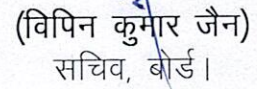 (विपिन कुमार जैन)
सचिव, बोर्ड।